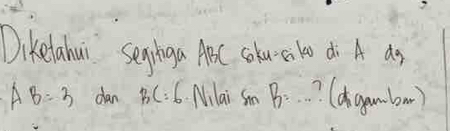 Diketahui segitiga ABC siku-siku di A dg
AB = 3 dan BC = 6. Nilai sin B = ...? (digambar)